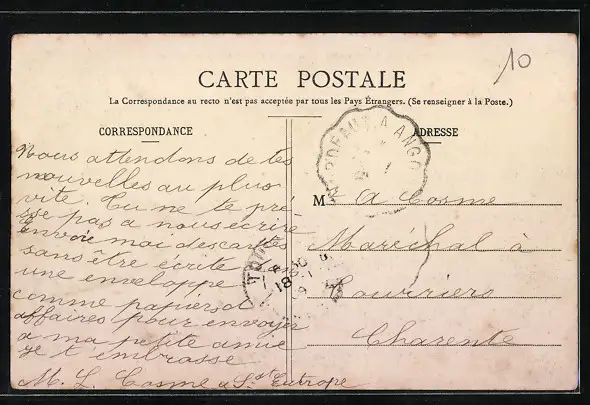 10
CARTE POSTALE
La Correspondance au recto n'est pas acceptée par tous les Pays Étrangers. (Se renseigner à la Poste.)
CORRESPONDANCE
Nous attendons de tes
nouvelles au plus
vite. Tu ne te pré-
sse pas a nous ecrire
envoie moi des cartes
sans être écrite dans
une enveloppe
comme papiers d
affaires pour envoyer
a ma petite amie
je t embrasse
M. L. Cosme a St Eutrope
ADRESSE
BORDEAUX A ANGO
M A Cosme
Maréchal à
Charente
18